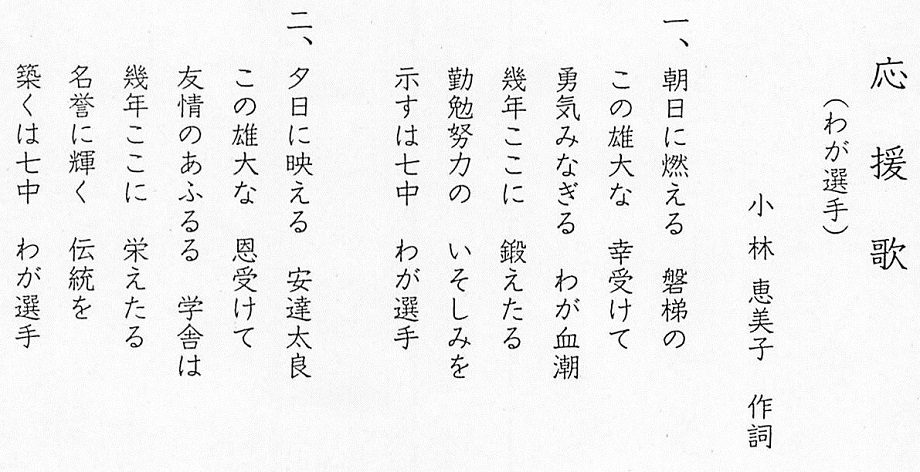 応援歌
（わが選手）
小林恵美子　作詞
一、朝日に燃える　磐梯の
この雄大な　幸受けて
勇気みなぎる　わが血潮
幾年ここに　鍛えたる
勤勉努力の　いそしみを
示すは七中　わが選手
二、夕日に映える　安達太良
この雄大な　恩受けて
友情のあふるる　学舎は
幾年ここに　栄えたる
名誉に輝く　伝統を
築くは七中　わが選手